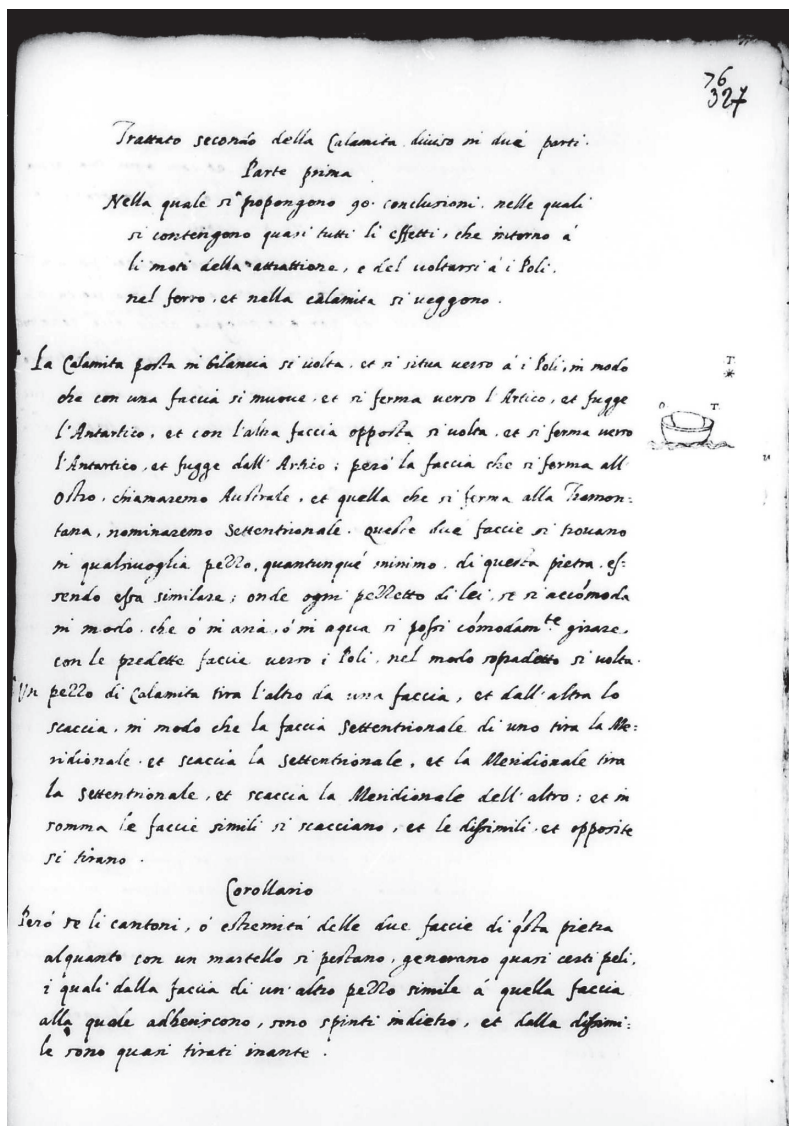 76
327
Trattato secondo della Calamita diviso in due parti.
Parte prima
Nella quale si propongono 90. conclusioni. nelle quali
si contengono quasi tutti li effetti, che intorno á
li moti della attrattione, e del voltarsi á i Poli.
nel ferro, et nella calamita si veggono.
La Calamita posta in bilancia si volta, et si situa verso á i Poli, in modo
che con una faccia si muove, et si ferma verso l'Artico, et fugge
l'Antartico, et con l'altra faccia opposta si volta, et si ferma verso
l'Antartico, et fugge dall'Artico; peró la faccia che si ferma all'
Ostro, chiamaremo Australe, et quella che si ferma alla Tramon:
tana, nominaremo Settentrionale. Queste due faccie si trovano
in qualsivoglia pezzo, quantunque minimo, di questa pietra, es:
sendo essa similare; onde ogni pezzetto di lei, se si accómoda
in modo, che ó in aria, ó in aqua si possi cómodam.te girare,
con le predette faccie verso i Poli, nel modo sopradetto si volta.
Un pezzo di Calamita tira l'altro da una faccia, et dall'altra lo
scaccia, in modo che la faccia Settentrionale di uno tira la Me:
ridionale, et scaccia la Settentrionale, et la Meridionale tira
la Settentrionale, et scaccia la Meridionale dell'altro; et in
somma le faccie simili si scacciano, et le dissimili, et opposite
si tirano.
Corollario
Peró se li cantoni, ó estremitá delle due faccie di qsta pietra
alquanto con un martello si pestano, generano quasi certi peli,
i quali dalla faccia di un'altro pezzo simile á quella faccia
alla quale adheriscono, sono spinti indietro, et dalla dissimi:
le sono quasi tirati inante.
T.
O. T.